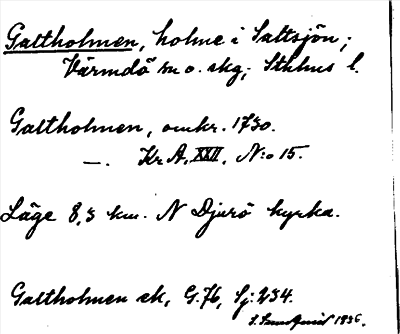 Galtholmen, holme i Saltsjön;
Värmdö sn o. skg; Sthlms l.
Galtholmen, omkr. 1730.
—. Kr A. XXII, N:o 15.
Läge 8,3 km. N Djurö kyrka.
Galtholmen ek, G. 76, Sj. 234.
1936.